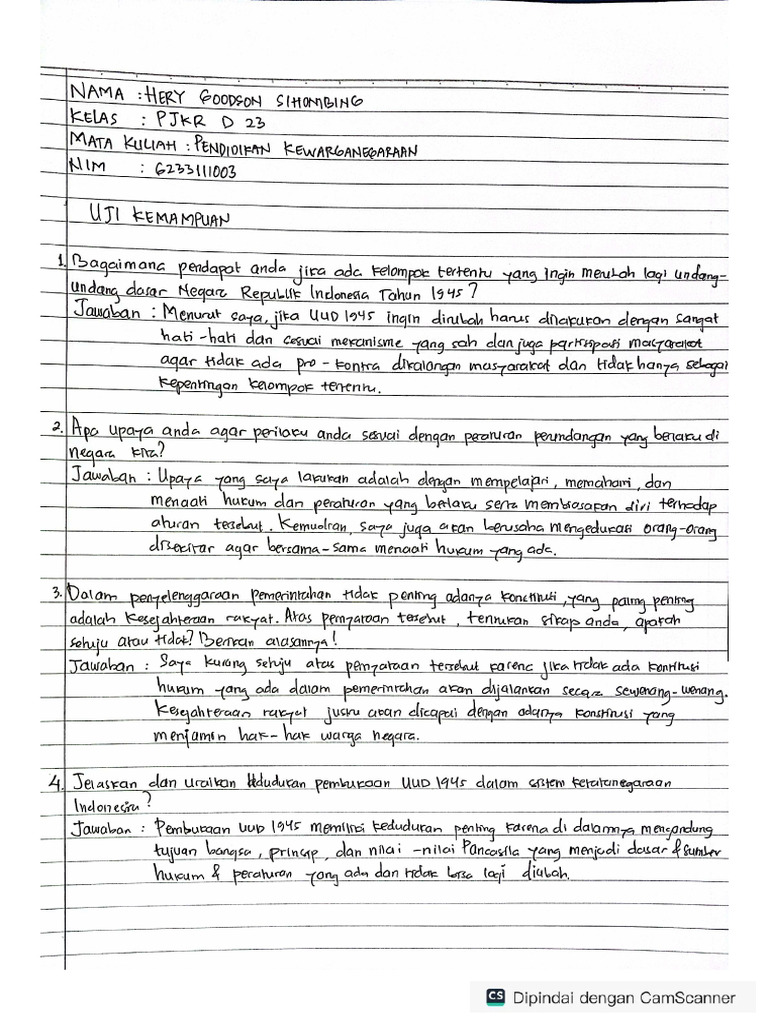 NAMA : HERY GOODSON SIHOMBING
KELAS : PJKR D 23
MATA KULIAH : PENDIDIKAN KEWARGANEGARAAN
NIM : 6233111003
UJI KEMAMPUAN
1. Bagaimana pendapat anda jika ada kelompok tertentu yang ingin merubah lagi undang-
undang dasar Negara Republik Indonesia Tahun 1945?
Jawaban : Menurut saya, jika UUD 1945 ingin dirubah harus dilakukan dengan sangat
hati-hati dan sesuai mekanisme yang sah dan juga partisipasi masyarakat
agar tidak ada pro-kontra dikalangan masyarakat dan tidak hanya sebagai
kepentingan kelompok tertentu.
2. Apa upaya anda agar perilaku anda sesuai dengan peraturan perundangan yang berlaku di
negara kita?
Jawaban : Upaya yang saya lakukan adalah dengan mempelajari, memahami, dan
menaati hukum dan peraturan yang berlaku serta membiasakan diri terhadap
aturan tersebut. Kemudian, saya juga akan berusaha mengedukasi orang-orang
disekitar agar bersama-sama menaati hukum yang ada.
3. Dalam penyelenggaraan pemerintahan tidak penting adanya konstitusi, yang paling penting
adalah kesejahteraan rakyat. Atas pernyataan tersebut, tentukan sikap anda, apakah
setuju atau tidak? Berikan alasannya!
Jawaban : Saya kurang setuju atas pernyataan tersebut karena jika tidak ada konstitusi
hukum yang ada dalam pemerintahan akan dijalankan secara sewenang-wenang.
Kesejahteraan rakyat justru akan dicapai dengan adanya konstitusi yang
menjamin hak-hak warga negara.
4. Jelaskan dan uraikan kedudukan pembukaan UUD 1945 dalam sistem ketatanegaraan
Indonesia?
Jawaban : Pembukaan UUD 1945 memiliki kedudukan penting karena di dalamnya mengandung
tujuan bangsa, prinsip, dan nilai-nilai Pancasila yang menjadi dasar & sumber
hukum & peraturan yang ada dan tidak bisa lagi diubah.
CS Dipindai dengan CamScanner